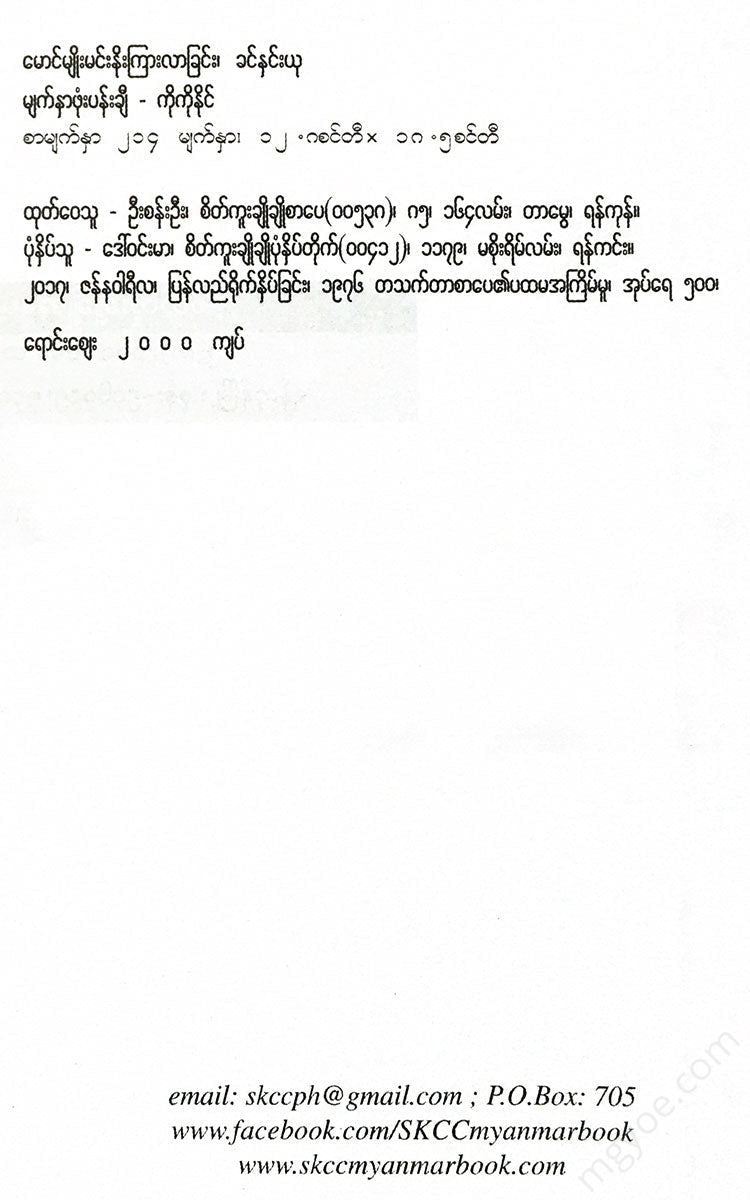 မောင်မျိုးမင်းနိုးကြားလာခြင်း၊ ခင်နှင်းယု
မျက်နှာဖုံးပန်းချီ - ကိုကိုနိုင်
စာမျက်နှာ ၂၁၄ မျက်နှာ၊ ၁၂ .ဂစင်တီ× ၁ဂ .၅စင်တီ
ထုတ်ဝေသူ - ဦးစန်းဦး၊ စိတ်ကူးချိုချိုစာပေ(၀၀၅၃ဂ)၊ ဂ၅၊ ၁၆၄လမ်း၊ တာမွေ၊ ရန်ကုန်။
ပုံနှိပ်သူ - ဒေါ်ဝင်းမာ၊ စိတ်ကူးချိုချိုပုံနှိပ်တိုက်(၀၀၄၁၂)၊ ၁၁၇၉၊ မစိုးရိမ်လမ်း၊ ရန်ကင်း။
၂၀၁၇၊ ဇန်နဝါရီလ၊ ပြန်လည်ရိုက်နှိပ်ခြင်း၊ ၁၉၇၆ တသက်တာစာပေ၏ပထမအကြိမ်မူ၊ အုပ်ရေ ၅၀၀၊
ရောင်းဈေး ၂ ၀ ၀ ၀ ကျပ်
email: skccph@gmail.com ; P.O.Box: 705
www.facebook.com/SKCCmyanmarbook
www.skccmyanmarbook.com
mgyoe.com